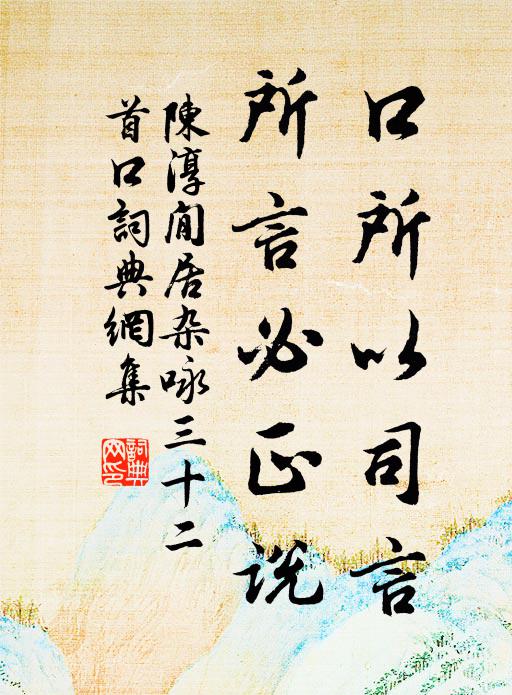 口所以司言
所言必正说
陳淳閒居杂咏三十二
首口詞典網集
詞典
網印